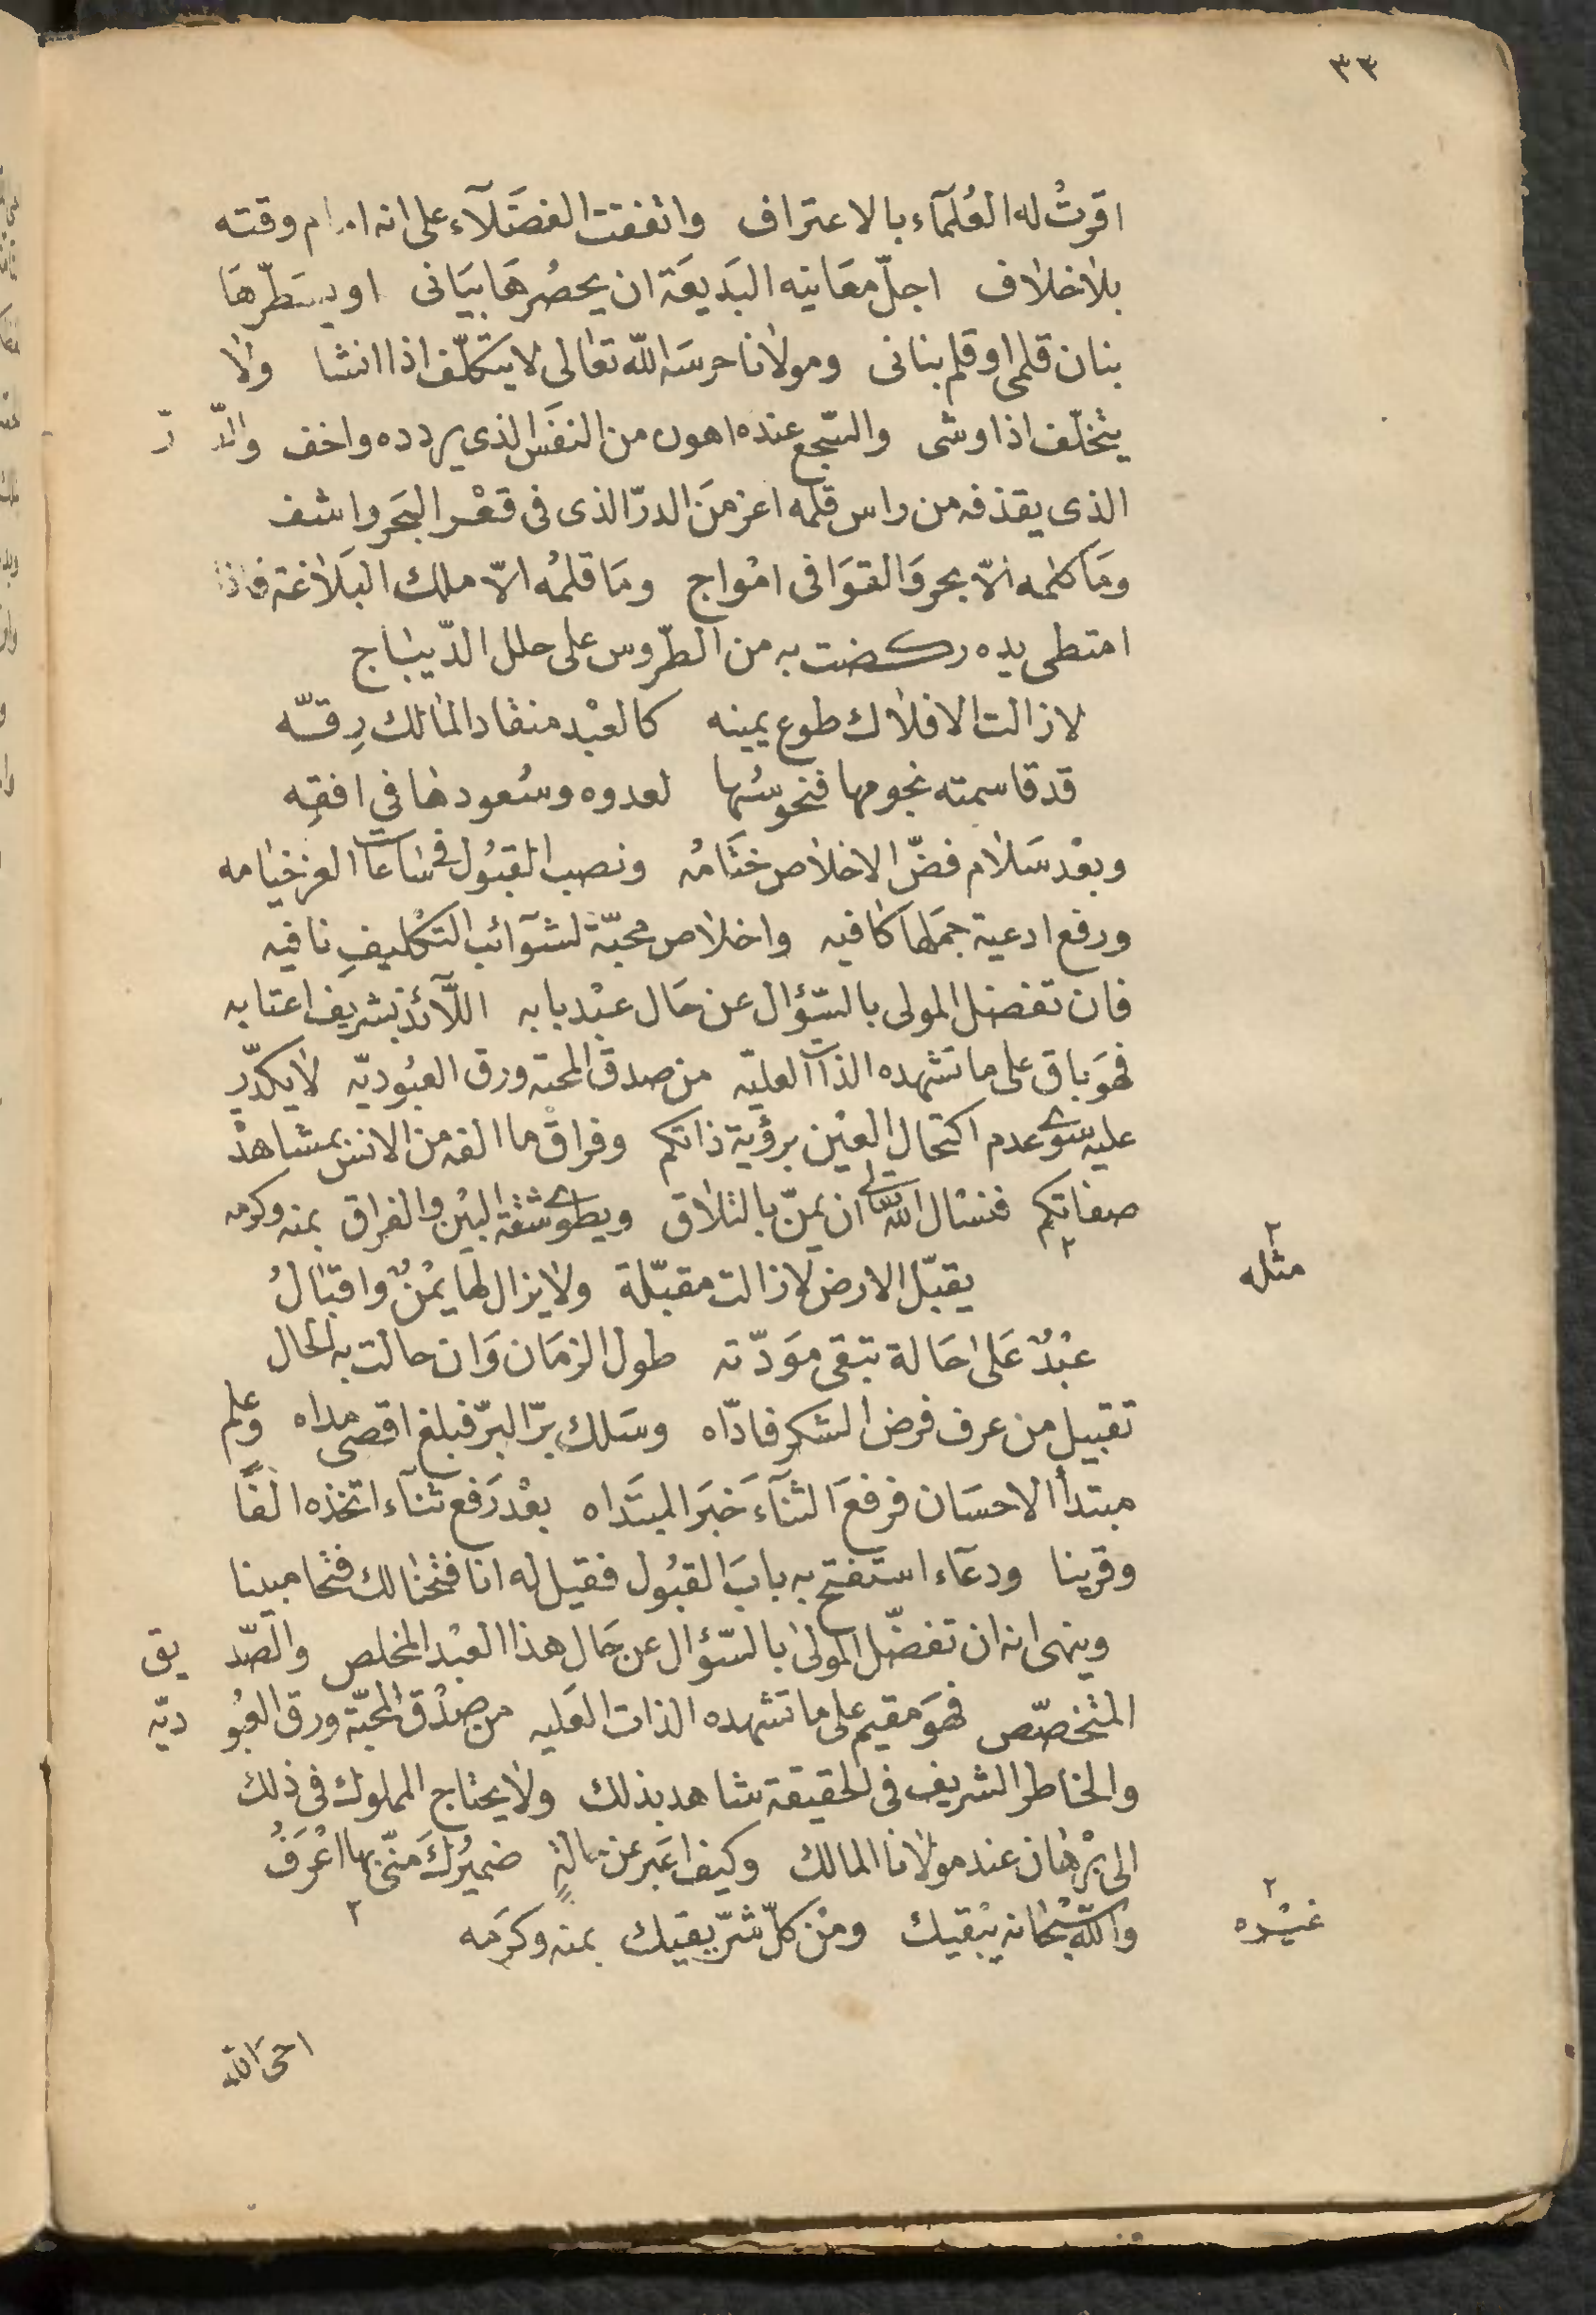 ٣٣
اقرتْ له العُلمآء بالاعتراف واتفقت الفضَلآء على انه امام وقته
بلاخلاف اجلّ معَانيه البَديعَة ان يحصُرهَا بيَانى او يسَطّرهَا
بنان قلمى او قلم بنانى ومولانا حرسَه اللّه تعالى لا يتكلّف اذا انشا ولا
يتخلّف اذا وشى والسّجع عنده اهون من النفَس الذى يردده واخف والدّ رّ
الذى يقذفه من راس قلمه اعز منَ الدرّ الذى فى قعْر البحَر واشف
ومَا كلمه الاّ بحر وَالقوَافى امْواج ومَا قلمُه الاّ ملك البَلاغة فاذا
امتطى يده ركضت به من الطّروس على حلل الدّيبَاج
لا زالت الافلاك طوع يمينه كالعبْد منقاد المالك رِقّه
قد قاسمته نجومها فنحوسُها لعدوه وسُعودها في افقِه
وبعْد سَلام فضّ الاخلاص ختَامُه ونصب القبُول فى سَاعات العز خيامه
ورفع ادعية جمَلها كافيه واخلاص محبّة لشوآئب التكْليفِ نافيه
فان تفضل المولى بالسّؤال عن حَال عبْد بابه اللّآئذ بشريف اعتابه
فهوَ باق على ما تشهده الذات العليّه من صدق المحبة ورق العبُوديّه لا يكدّر
عليه سوى عدم اكتحال العيْن برؤية ذاتكم وفراق ما الفه من الانس بمشاهدْ
صفاتكم فنسْال اللّه تعالى ان يمنّ بالتلاق ويطوى شقة البيْن والفراق بمنه وكرمه
مثله
يقبّل الارض لا زالت مقبّلة ولا يزال لهَا يمْنٌ واقبَالُ
عبْدٌ عَلى حَالة تبقى موَدّته طول الزمَان وَان حالت به الحال
تقبيل من عرف فرض الشكر فادّاه وسَلك برّ البرّ فبلغ اقصى مداه وعلم
مبتدأ الاحسَان فرفعَ الثنآءَ خبَر المبتَداه بعْد رَفع ثنآء اتخذه الفًا
وقرينا ودعآء استفتح به بابَ القبُول فقيل له انا فتحنا لك فتحا مبينا
وينهى انه ان تفضّل المولىٰ بالسّؤال عن حَال هذا العبْد المخلص والصّد يق
المتخصّص فهوَ مقيم على ما تشهده الذات العَليه من صِدْق المحبّة ورق العبُو ديّه
والخاطر الشريف فى الحقيقة شاهد بذلك ولا يحتاج المملوك فى ذلك
الى برْهَان عند مولانا المالك وكيف اعَبر عن حالةٍ ضميْرُكَ منّى بها اعْرَفُ
غيْره
واللّه سبْحانه يبْقيك ومنْ كلّ شرّ يقيك بمنه وكرَمه
احمى اللّه